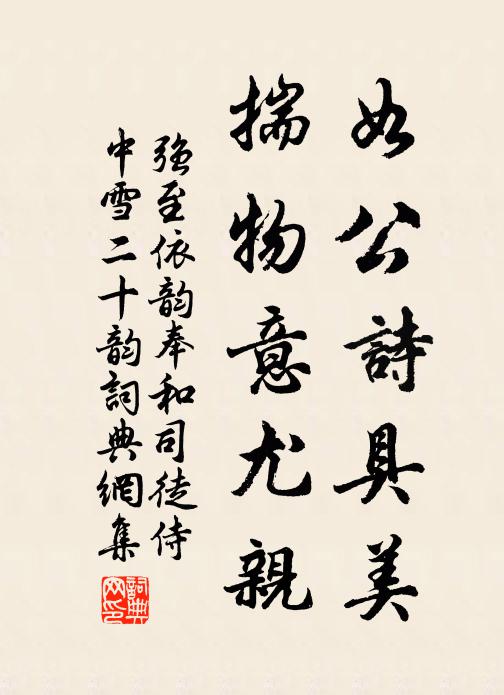 如公詩具美
揣物意尤親
強至依韵奉和司徒侍
中雪二十韵詞典網集
詞典
网印